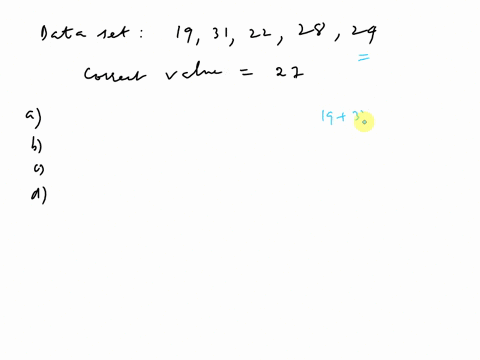 Data set : 19, 31, 22, 28, 29
=
Correct value = 27
a)
19 + 31
b)
c)
d)